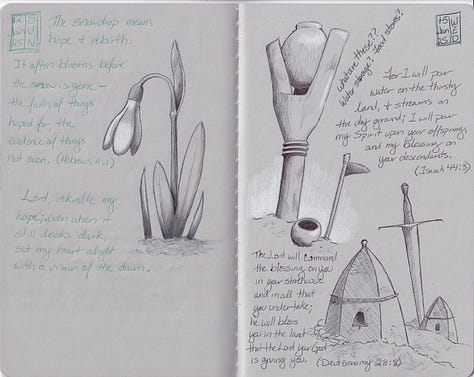 The snowdrop means
hope & rebirth.
It often blooms before
the snow is gone –
the faith of things
hoped for, the
evidence of things
not seen. (Hebrews 11:1)
Lord, rekindle my
hope; even when it
still looks dark,
set my heart alight
with a vision of the dawn.
SUN
What are these??
Water storage? Food stores?
WED
For I will pour
water on the thirsty
land, & streams on
the dry ground; I will pour
my Spirit upon your offspring,
and my blessing on
your descendants.
(Isaiah 44:3)
The Lord will command
the blessing on you
in your storehouse
and in all that
you undertake;
he will bless
you in the land
that the Lord your God
is giving you. (Deuteronomy 28:8)